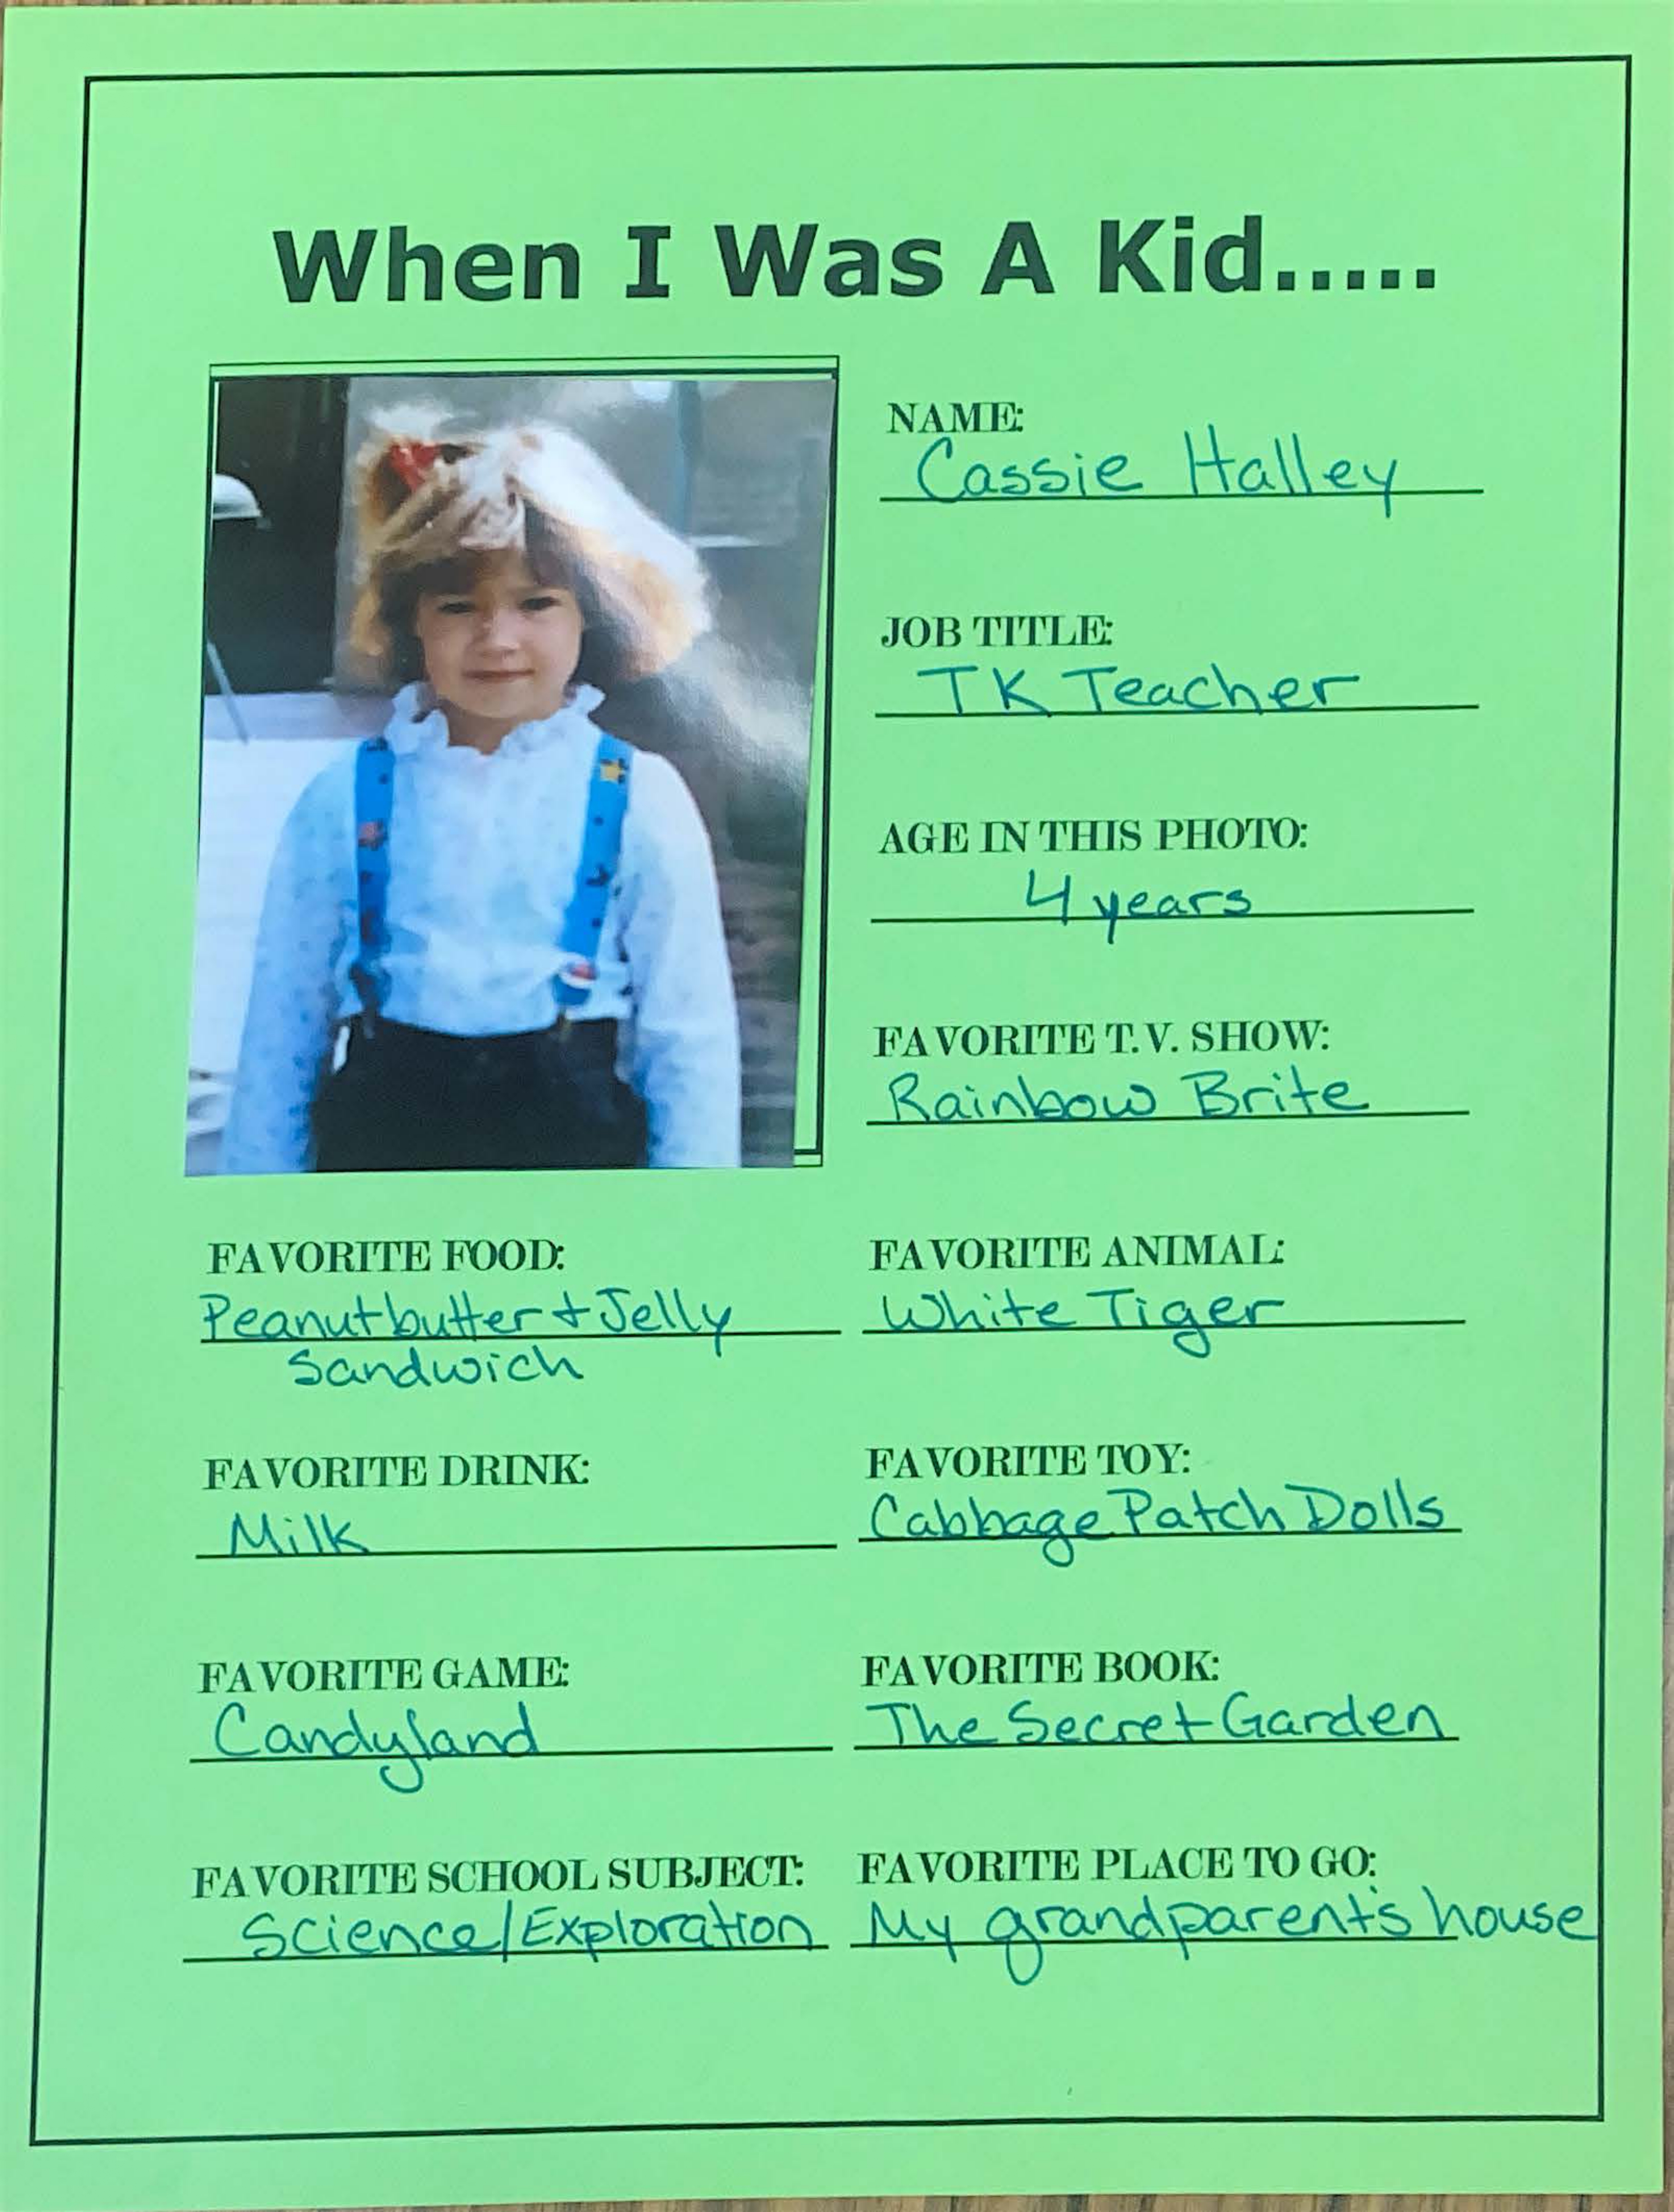 When I Was A Kid.....
NAME:
Cassie Halley
JOB TITLE:
TK Teacher
AGE IN THIS PHOTO:
4 years
FAVORITE T.V. SHOW:
Rainbow Brite
FAVORITE FOOD:
Peanutbutter + Jelly
Sandwich
FAVORITE ANIMAL:
White Tiger
FAVORITE DRINK:
Milk
FAVORITE TOY:
Cabbage Patch Dolls
FAVORITE GAME:
Candyland
FAVORITE BOOK:
The Secret Garden
FAVORITE SCHOOL SUBJECT:
Science/Exploration
FAVORITE PLACE TO GO:
My grandparent's house